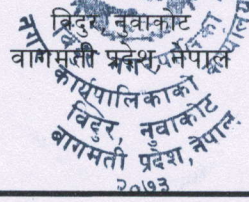 विदुर नुवाकोट
वागमती प्रदेश, नेपाल
नगर कार्यपालिकाको
विदुर, नुवाकोट
बागमती प्रदेश, नेपाल
२०७३